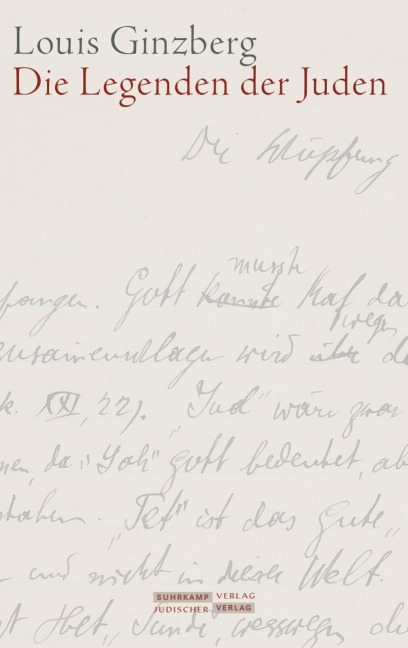 Louis Ginzberg
Die Legenden der Juden
Die Schöpfung
musste
fangen. Gott konnte Kaf da
wegen
wird
k. XXI, 22). "Jud" wäre zwar
nen, da "Jah" Gott bedeutet, ab
staben. "Tet" ist das Gute,
und nicht in dieser Welt.
SUHRKAMP VERLAG
JÜDISCHER VERLAG
st Het, "Sünde", wesswegen